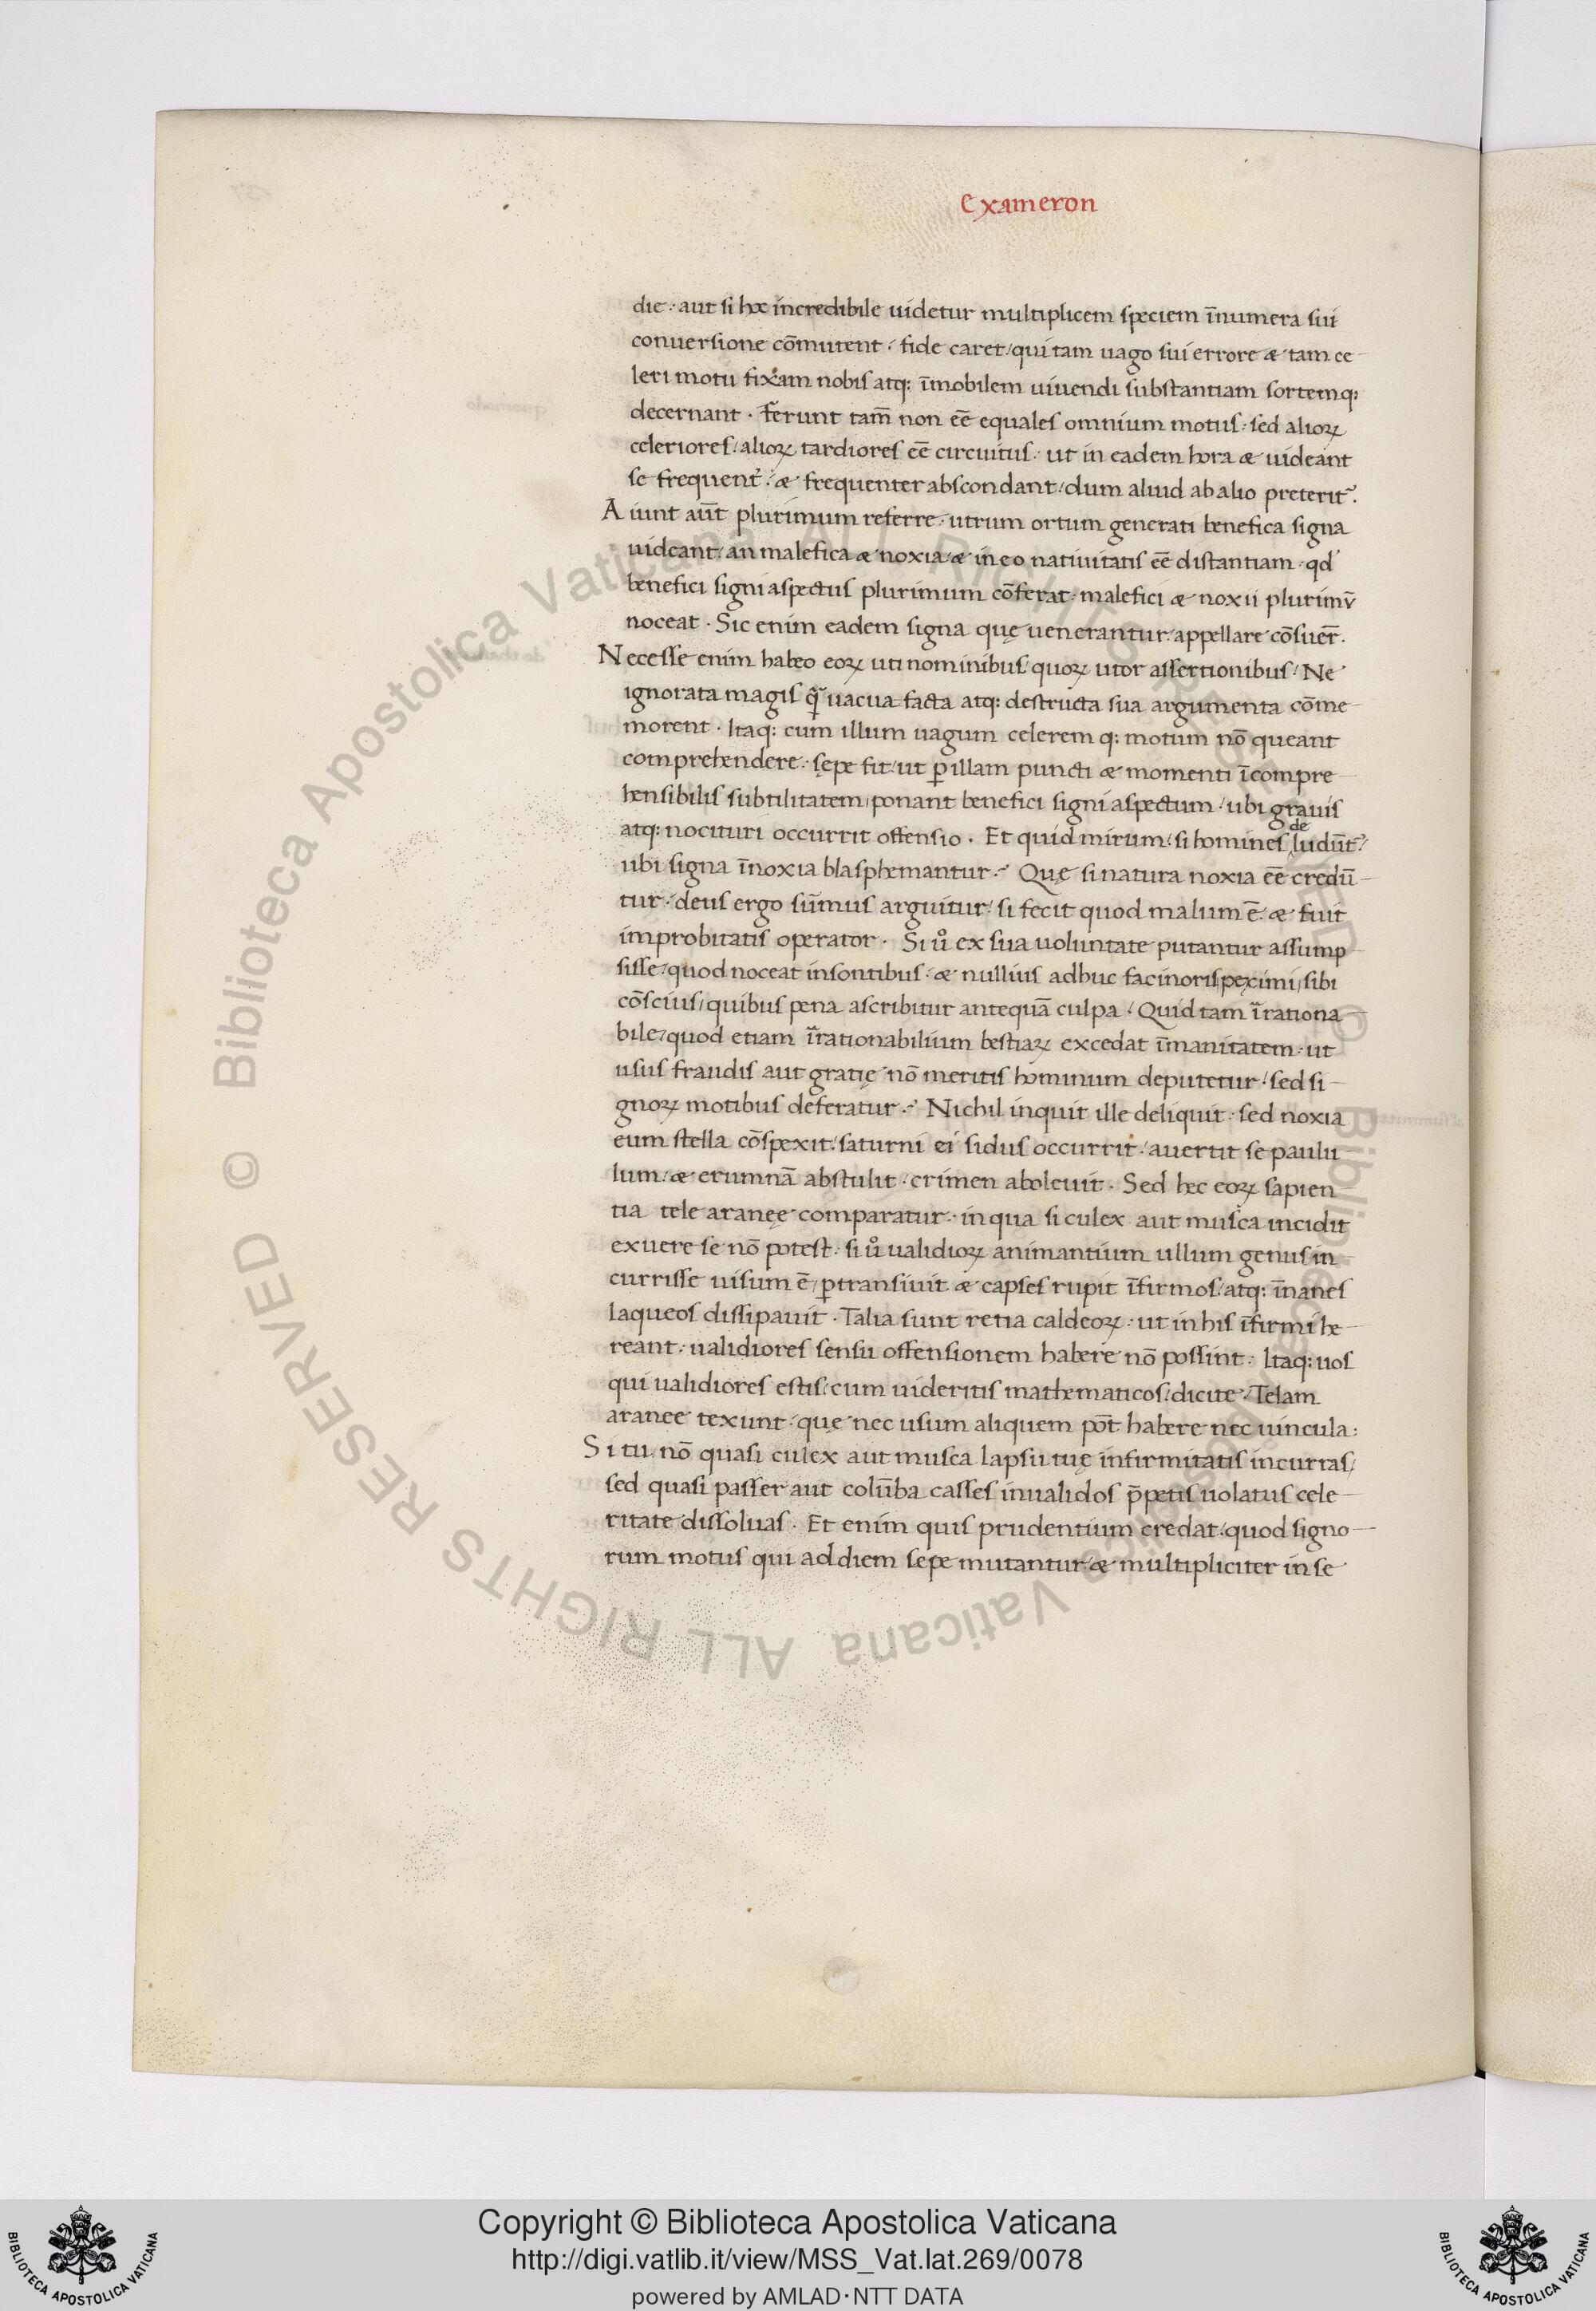 Exameron
die · aut si hoc incredibile uidetur multiplicem speciem īnumera sui
conuersione cōmutent · fide caret / qui tam uago sui errore & tam ce-
leri motu fixam nobis atq: īmobilem uiuendi substantiam sortemq:
decernant · Ferunt tam̄ non eē equales omnium motus · sed alioꝝ
celeriores / alioꝝ tardiores eē circuitus · ut in eadem hora & uideant
se frequent᷑ · & frequenter abscondant / dum aliud ab alio preterit᷑.
Aiunt aūt plurimum referre · utrum ortum generati benefica signa
uideant / an malefica & noxia · & in eo natiuitatis eē distantiam · qd'
benefici signi aspectus plurimum cōferat · malefici & noxii plurimv̄
noceat · Sic enim eadem signa quę uenerantur / appellare cōsuer̄.
Necesse enim habeo eoꝝ uti nominibus / quoꝝ utor assertionibus / Ne
ignorata magis q̄ uacua facta atq: destructa sua argumenta cōme-
morent · Itaq: cum illum uagum celerem q: motum nō queant
comprehendere · sępe fit / ut ꝑ illam puncti & momenti īcompre-
hensibilis subtilitatem / ponant benefici signi aspectum / ubi grauis
atq: nocituri occurrit offensio · Et quid mirum / si homines de ludūt᷑ /
ubi signa īnoxia blasphemantur · Quę si natura noxia eē credū-
tur · deus ergo sūmus arguitur / si fecit quod malum ē · & fuit
improbitatis operator · Si uͦ ex sua uoluntate putantur assump
sisse / quod noceat insontibus · & nullius adhuc facinoris peximi / sibi
cōscius / quibus pena ascribitur antequā culpa / Quid tam īrrationa-
bile / quod etiam īrrationabilium bestiaꝝ excedat īmanitatem · ut
usus fraudis aut gratię nō meritis hominum deputetur / sed si-
gnoꝝ motibus deferatur · Nichil inquit ille deliquit · sed noxia
eum stella cōspexit / saturni ei sidus occurrit / auertit se paulu
lum / & erumnā abstulit · crimen aboleuit · Sed hec eoꝝ sapien-
tia tele aranęe comparatur · in qua si culex aut musca incidit
exuere se nō potest · si uͦ ualidioꝝ animantium ullum genus in-
currisse uisum ē / ꝑtransiuit & capses rupit īfirmos / atq: īnanes
laqueos dissipauit · Talia sunt retia caldeoꝝ · ut in his īfirmi he-
reant · ualidiores sensu offensionem habere nō possint · Itaq: uos
qui ualidiores estis / cum uideritis mathematicos / dicite / Telam
aranee texunt · quę nec usum aliquem pōt habere nec uincula:
Si tu nō quasi culex aut musca lapsu tuę infirmitatis incurras /
sed quasi passer aut colūba casses inualidos p̄petis uolatus cele-
ritate dissoluas · Et enim quis prudentium credat / quod signo-
rum motus qui ad diem sepe mutantur & multipliciter in se
© Biblioteca Apostolica Vaticana ALL RIGHTS RESERVED
© Biblioteca Apostolica Vaticana ALL RIGHTS RESERVED
Copyright © Biblioteca Apostolica Vaticana
http://digi.vatlib.it/view/MSS_Vat.lat.269/0078
powered by AMLAD·NTT DATA
BIBLIOTECA APOSTOLICA VATICANA
BIBLIOTECA APOSTOLICA VATICANA